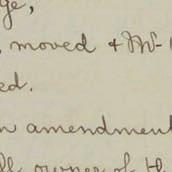 ge,
, moved & Mr-
ed.
n amendment
ll owner of th